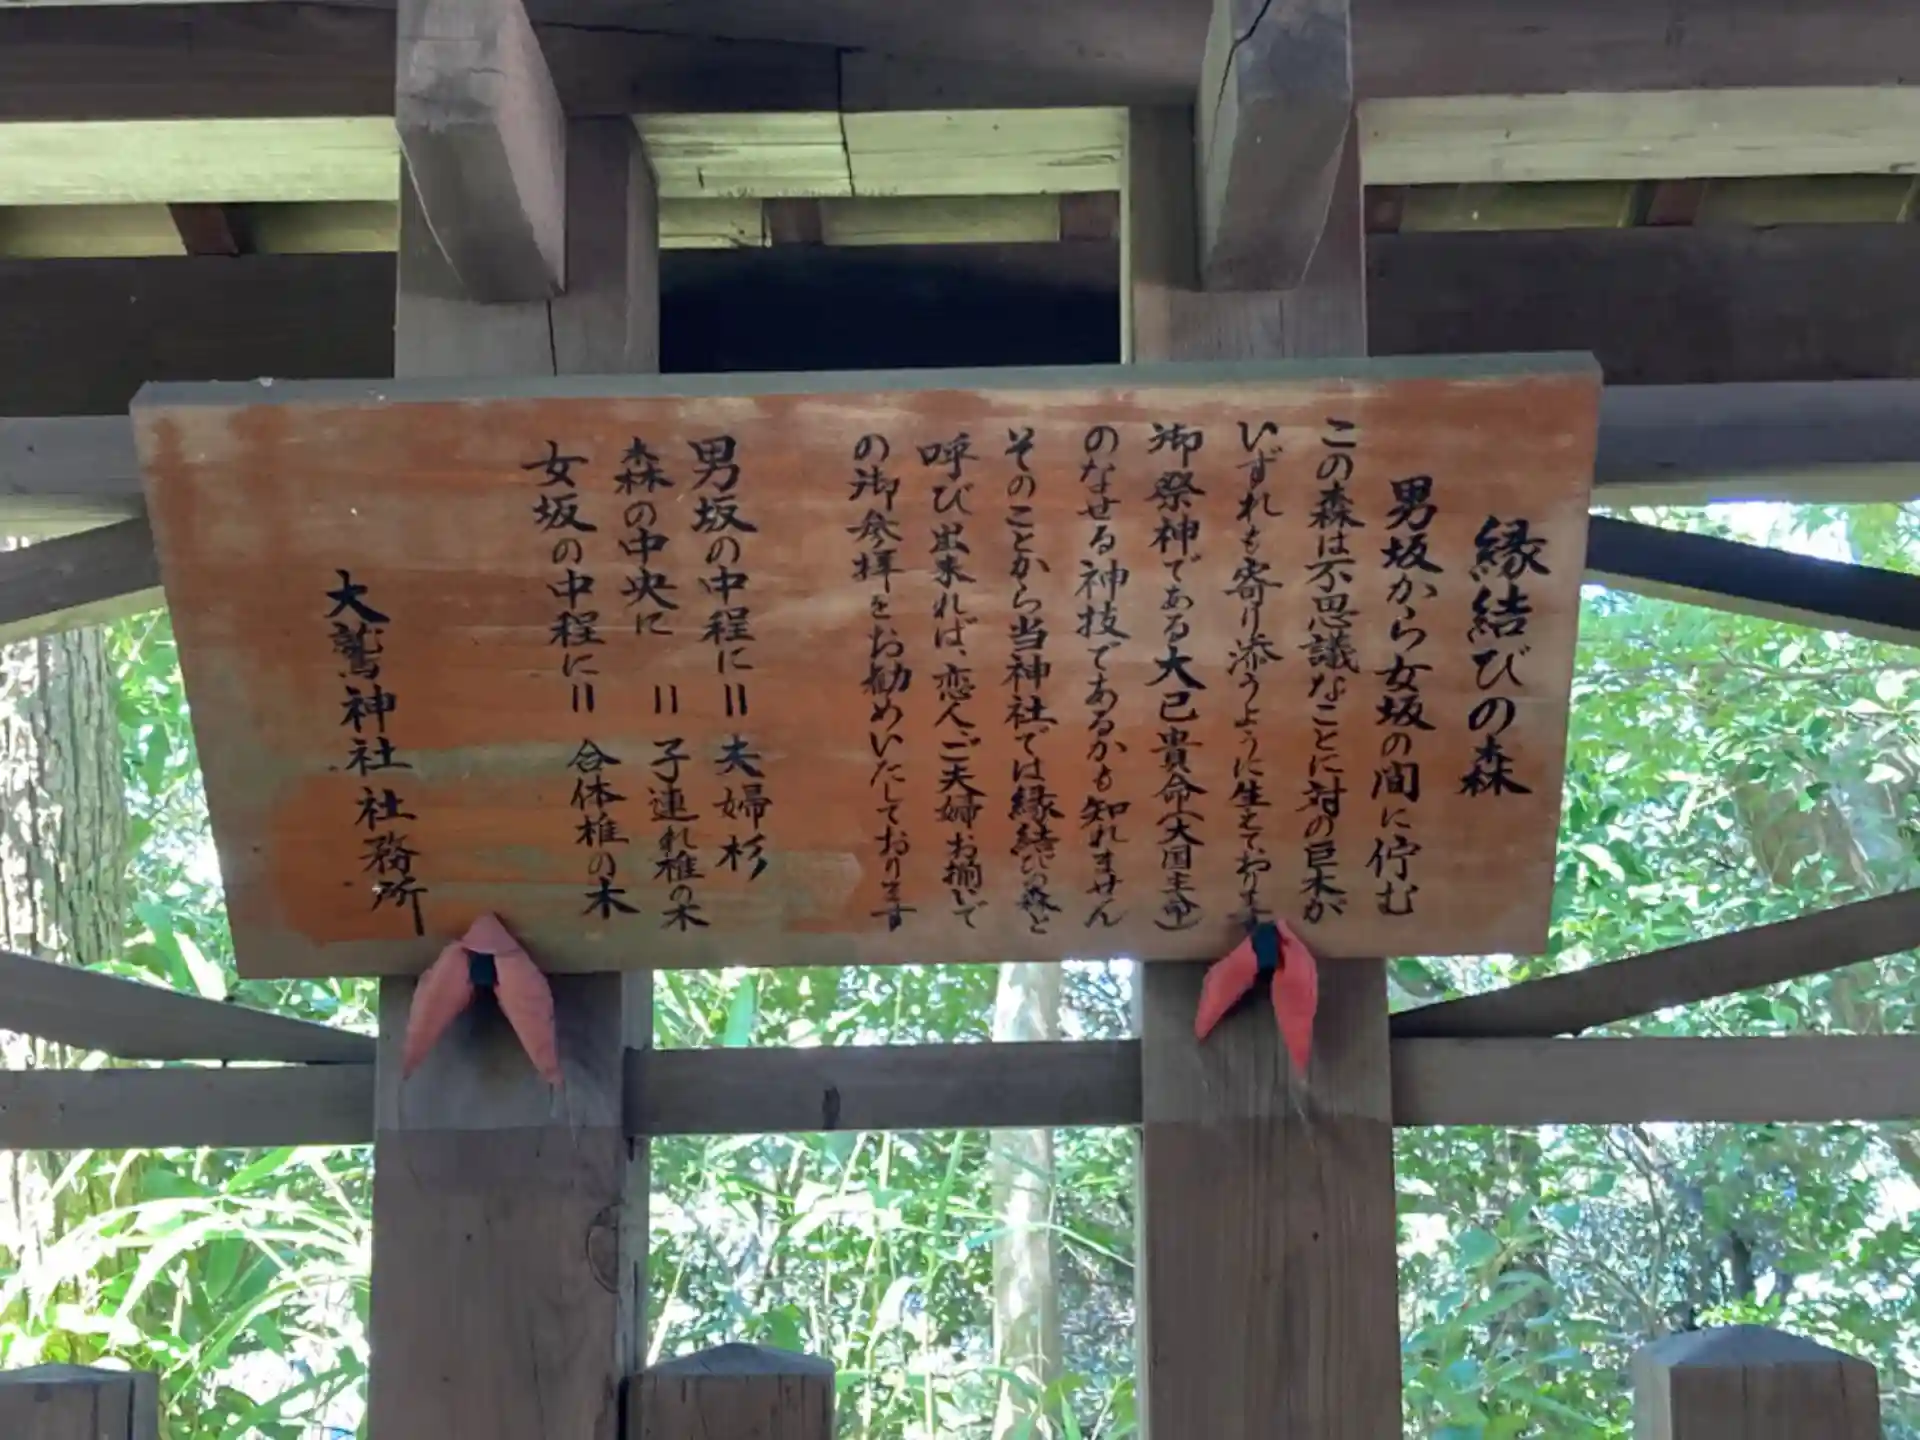 縁結びの森
男坂から女坂の間に佇む
この森は不思議なことに対の巨木が
いずれも寄り添うように生えております
御祭神である大己貴命(大国主命)
のなせる神技であるかも知れません
そのことから当神社では縁結びの森と
呼び出来れば、恋人、ご夫婦お揃いで
の御参拝をお勧めいたしております
男坂の中程に=夫婦杉
森の中央に=子連れ椎の木
女坂の中程に=合体椎の木
大鷲神社 社務所